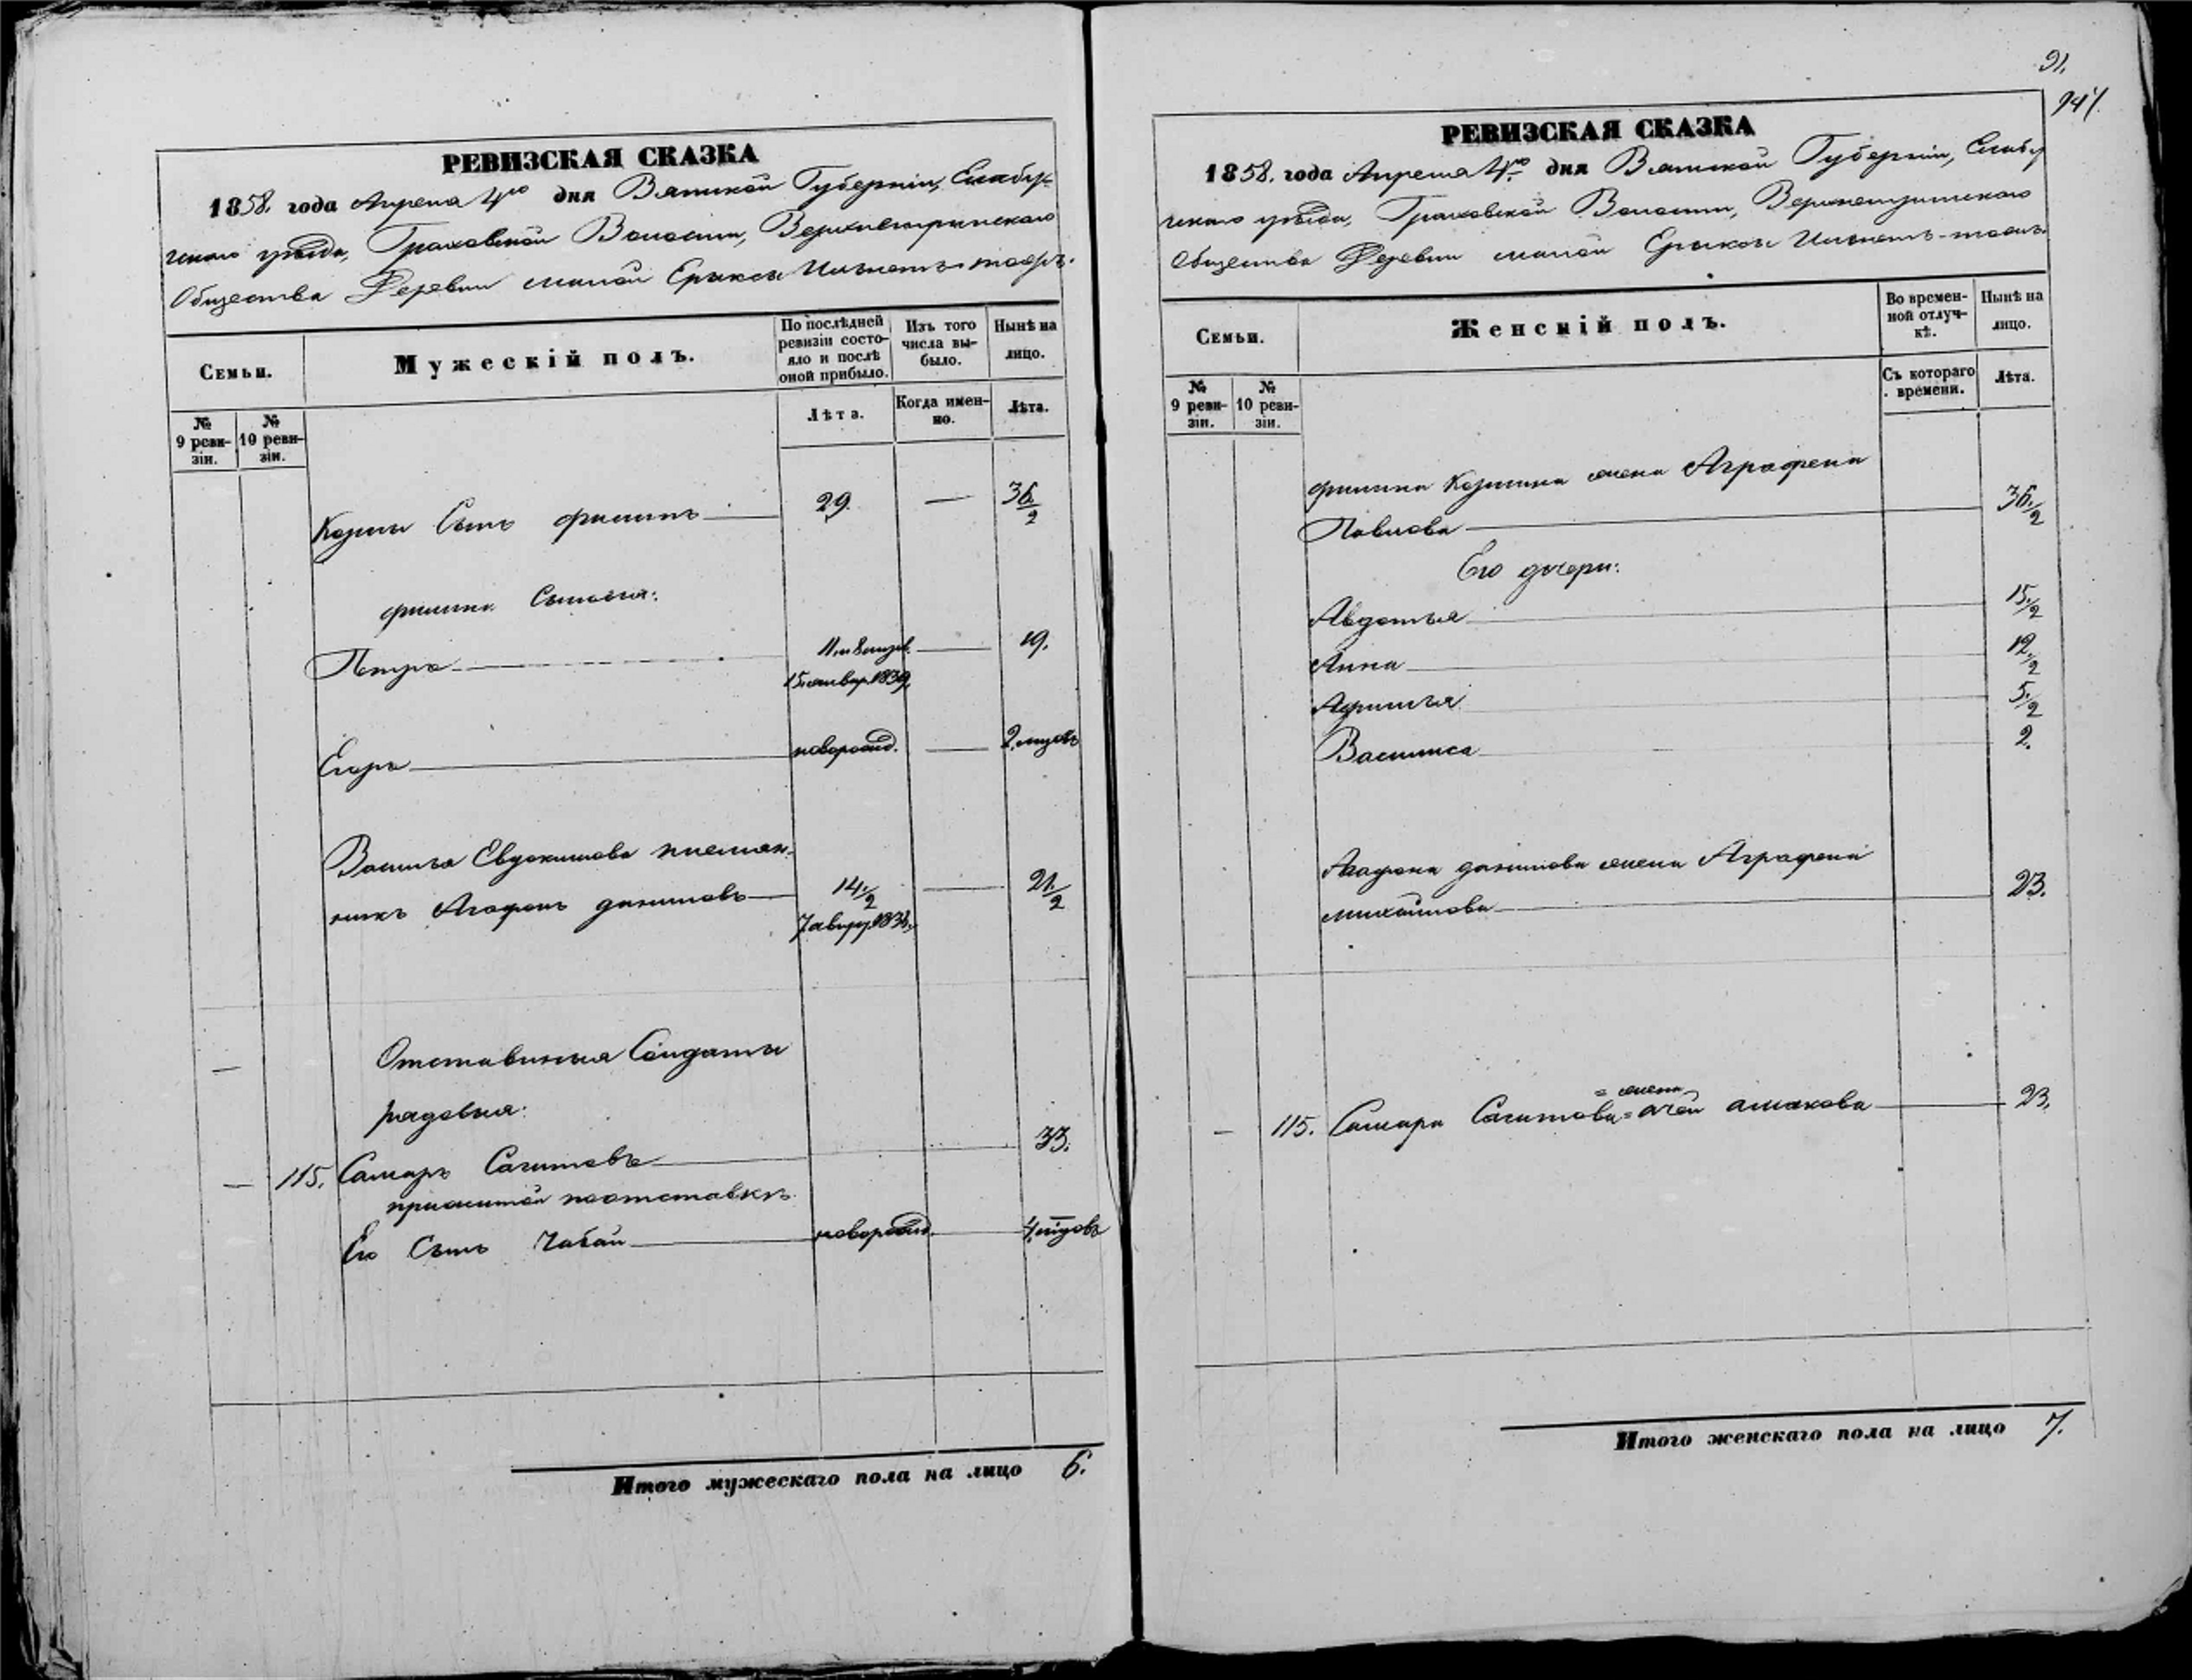 РЕВИЗСКАЯ СКАЗКА
1858. года Апреля 4го дня Вятской Губерніи, Елабуж-
скаго уѣзда, Граховской Волости,
Общества Деревни малой Ерыксы
Семьи.
Мужескій полъ.
По послѣдней ревизіи состояло и послѣ оной прибыло.
Изъ того числа выбыло.
Нынѣ на лицо.
№ 9 ревизіи.
№ 10 ревизіи.
Лѣта.
Когда именно.
Лѣта.
Козмы Сынъ филипъ 29. — 36/2
филипа Сыновья:
Петръ 19.
15. январ. 1839.
Егоръ новорожд. —
Василья Евдокимова племян-
никъ Агафонъ даниловъ 14/2 — 21/2
Отставныя Солдаты
рядовыя:
— 115. Самаръ Сагитовъ 33.
Его Сынъ Чабай новорожд.
Итого мужескаго пола на лицо 6.
91.
947.
РЕВИЗСКАЯ СКАЗКА
1858. года Апреля 4го дня Вятской Губерніи, Елабу
жскаго уѣзда, Граховской Волости,
Общества Деревни малой Ерыксы
Семьи.
Женскій полъ.
Во временной отлучкѣ.
Нынѣ на лицо.
№ 9 ревизіи.
№ 10 ревизіи.
Съ котораго времени.
Лѣта.
филипа Козмина жена Аграфена
Павлова 36./2
Его дочери:
Авдотья 15./2
Анна 12./2
5./2
Василиса 2.
Агафона данилова жена Аграфена
михайлова 23.
= жена
— 115. Самара Сагитова = 23.
Итого женскаго пола на лицо 7.